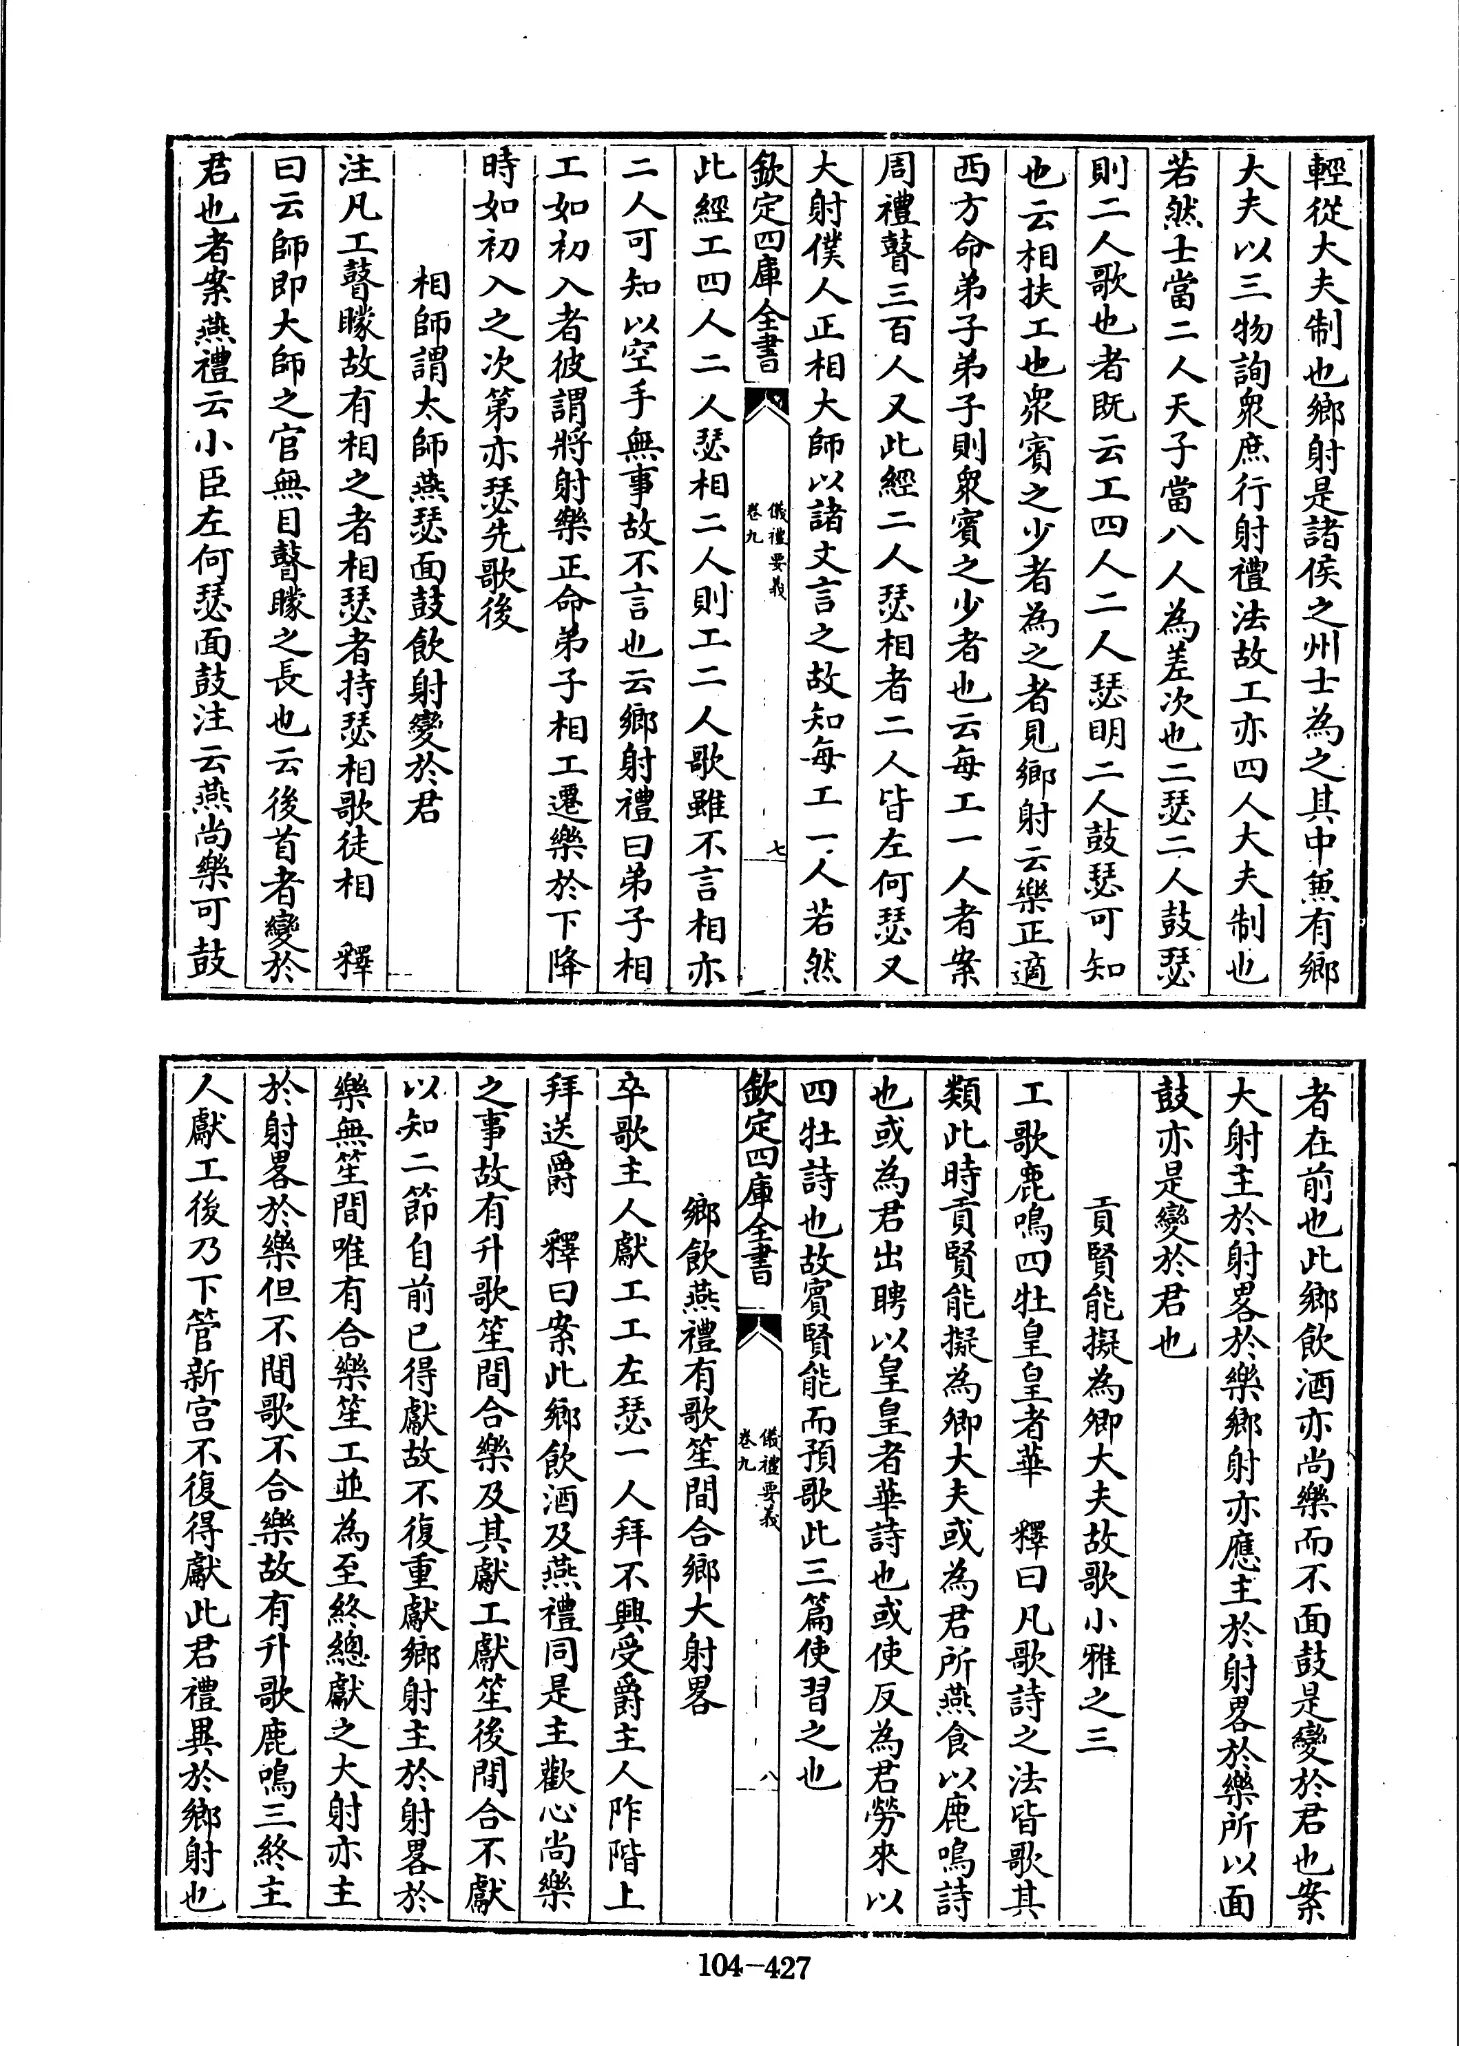 輕從大夫制也鄉射是諸侯之州士為之其中兼有鄉
大夫以三物詢衆庶行射禮法故工亦四人大夫制也
若然士當二人天子當八人為差次也二瑟二人鼓瑟
則二人歌也者既云工四人二人瑟明二人鼓瑟可知
也云相扶工也衆賓之少者為之者見鄉射云樂正適
西方命弟子弟子則衆賓之少者也云每工一人者案
周禮瞽三百人又此經二人瑟相者二人皆左何瑟又
大射僕人正相大師以諸文言之故知每工一人若然
欽定四庫全書
儀禮要義
卷九
七
此經工四人二人瑟相二人則工二人歌雖不言相亦
二人可知以空手無事故不言也云鄉射禮曰弟子相
工如初入者彼謂將射樂正命弟子相工遷樂於下降
時如初入之次第亦瑟先歌後
相師謂太師燕瑟面鼓飲射變於君
注凡工瞽矇故有相之者相瑟者持瑟相歌徒相 釋
曰云師即大師之官無目瞽矇之長也云後首者變於
君也者案燕禮云小臣左何瑟面鼓注云燕尚樂可鼓
者在前也此鄉飲酒亦尚樂而不面鼓是變於君也案
大射主於射畧於樂鄉射亦應主於射畧於樂所以面
鼓亦是變於君也
貢賢能擬為卿大夫故歌小雅之三
工歌鹿鳴四牡皇皇者華 釋曰凡歌詩之法皆歌其
類此時貢賢能擬為卿大夫或為君所燕食以鹿鳴詩
也或為君出聘以皇皇者華詩也或使反為君勞來以
四牡詩也故賓賢能而預歌此三篇使習之也
欽定四庫全書
儀禮要義
卷九
八
鄉飲燕禮有歌笙間合鄉大射畧
卒歌主人獻工工左瑟一人拜不興受爵主人阼階上
拜送爵 釋曰案此鄉飲酒及燕禮同是主歡心尚樂
之事故有升歌笙間合樂及其獻工獻笙後間合不獻
以知二節自前已得獻故不復重獻鄉射主於射畧於
樂無笙間唯有合樂笙工並為至終總獻之大射亦主
於射畧於樂但不間歌不合樂故有升歌鹿鳴三終主
人獻工後乃下管新宮不復得獻此君禮異於鄉射也
104-427